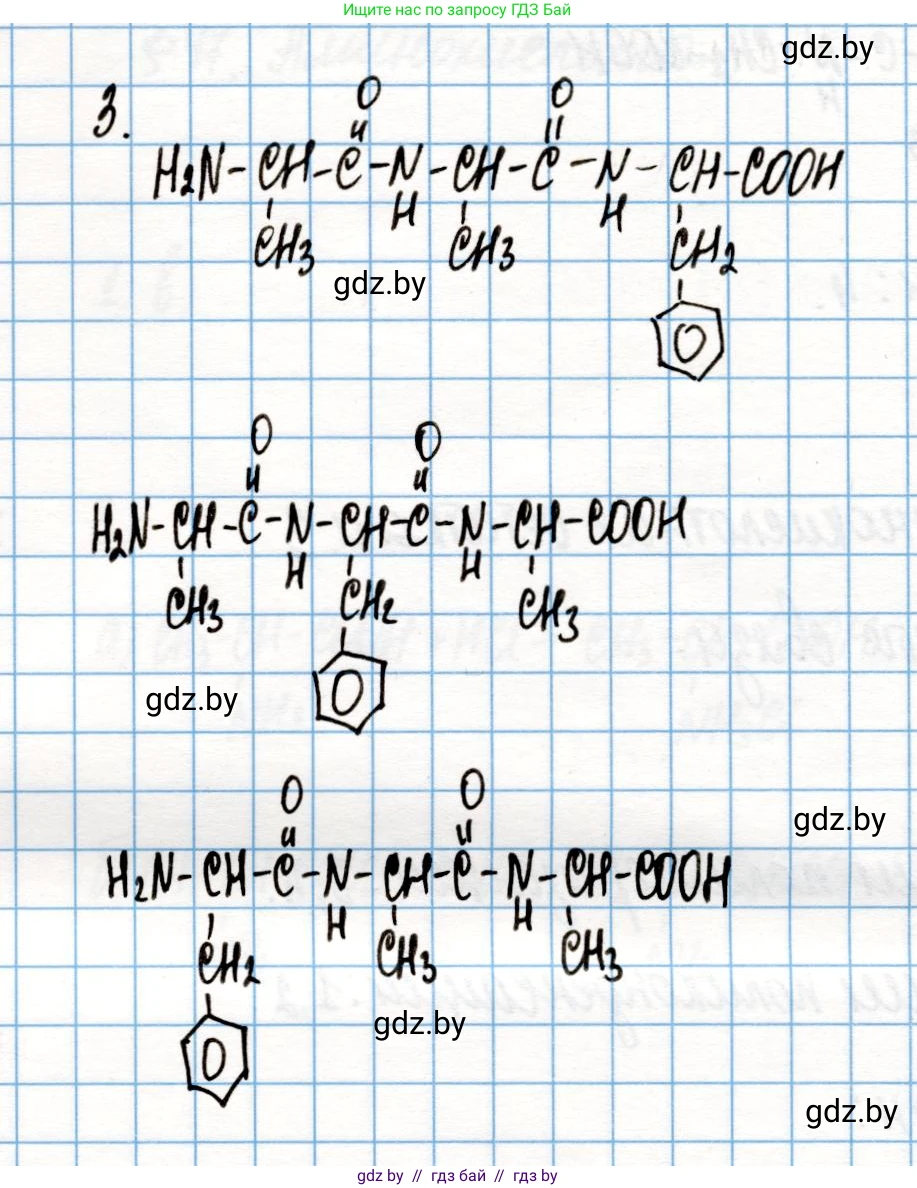 Ищите нас по запросу ГДЗ Бай
gdz.by
3.
O O
H₂N-CH-C-N-CH-C-N-CH-COOH
H H
CH₃ CH₃ CH₂
gdz.by
O O
H₂N-CH-C-N-CH-C-N-CH-COOH
H H
CH₃ CH₂ CH₃
gdz.by
O O
gdz.by
H₂N-CH-C-N-CH-C-N-CH-COOH
H H
CH₂ CH₃ CH₃
gdz.by
gdz.by
gdz.by // гдз бай // гдз by